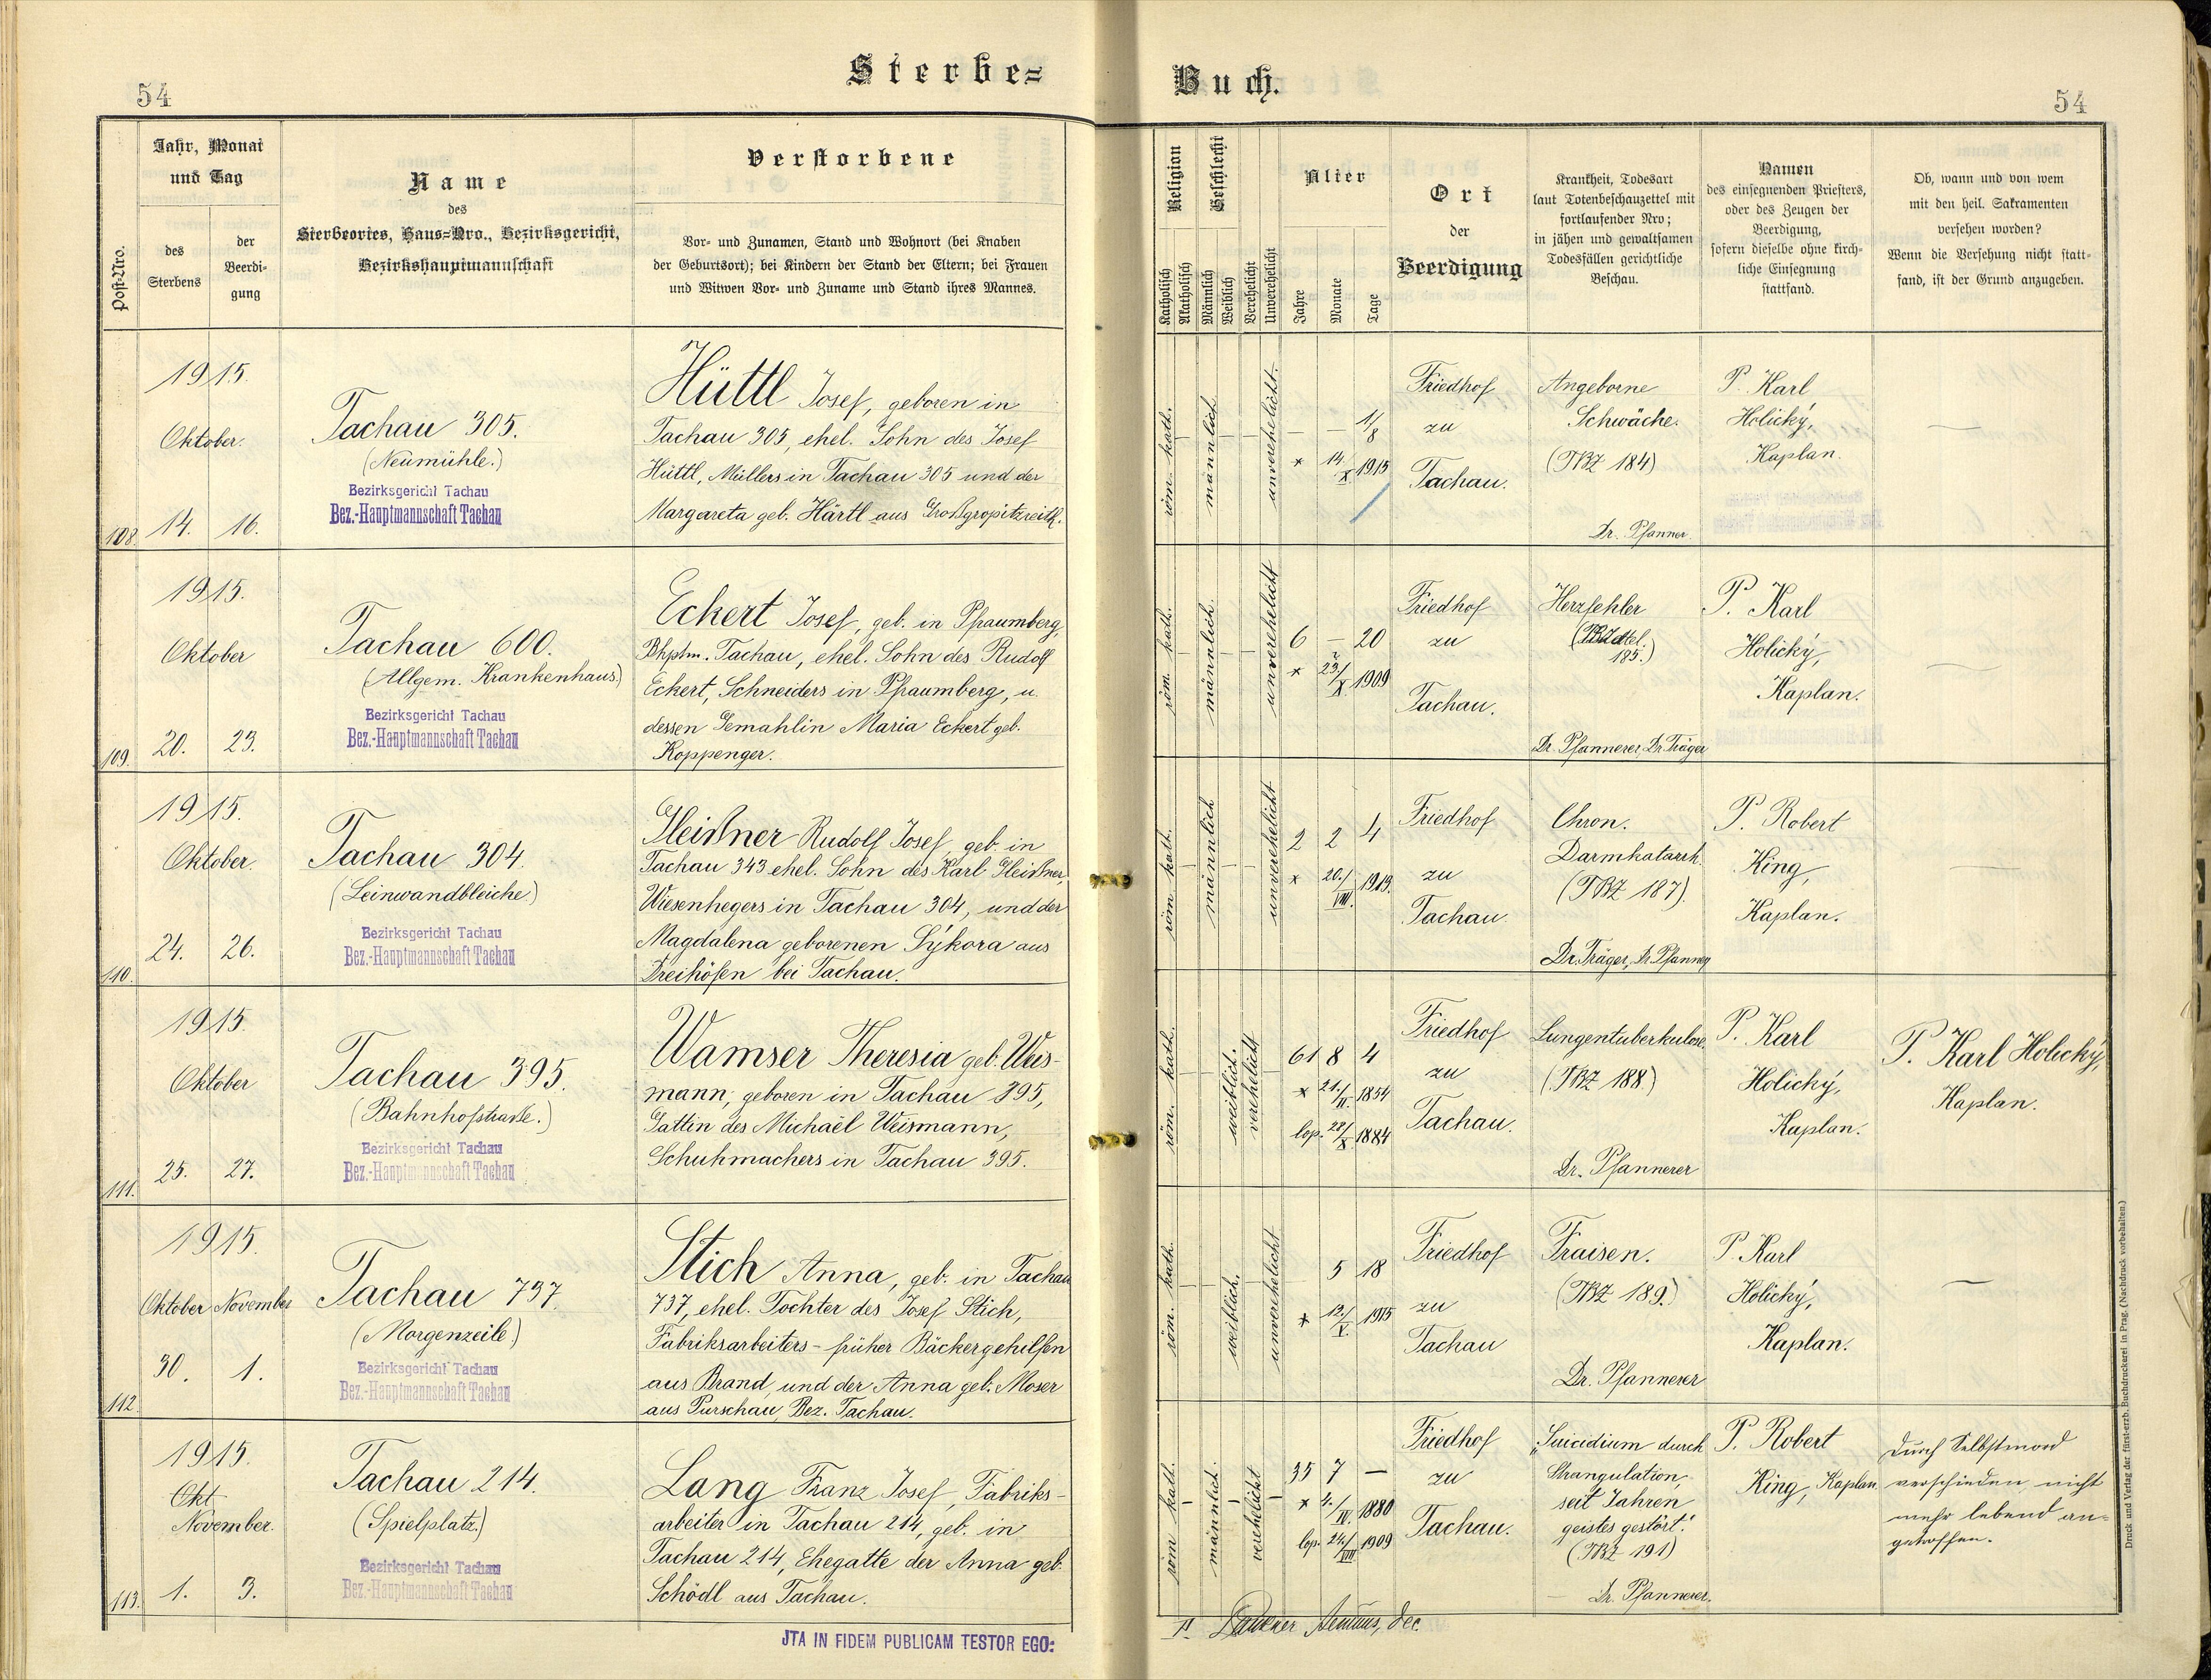 Sterbe=
Buch.
54
54
Post-Nro.
Jahr, Monat
und Tag
des
Sterbens
der
Beerdi-
gung
Name
des
Sterbeortes, Haus=Nro., Bezirksgericht,
Bezirkshauptmannschaft
Verstorbene
Vor- und Zunamen, Stand und Wohnort (bei Knaben
der Geburtsort); bei Kindern der Stand der Eltern; bei Frauen
und Witwen Vor- und Zuname und Stand ihres Mannes.
Religion
Katholisch
Akatholisch
Geschlecht
Männlich
Weiblich
Verehelicht
Unverehelicht
Alter
Jahre
Monate
Tage
Ort
der
Beerdigung
Krankheit, Todesart
laut Totenbeschauzettel mit
fortlaufender Nro;
in jähen und gewaltsamen
Todesfällen gerichtliche
Beschau.
Namen
des einsegnenden Priesters,
oder des Zeugen der
Beerdigung,
sofern dieselbe ohne kirch-
liche Einsegnung
stattfand.
Ob, wann und von wem
mit den heil. Sakramenten
versehen worden?
Wenn die Versehung nicht statt-
fand, ist der Grund anzugeben.
108.
1915.
Oktober.
14. 16.
Tachau 305.
(Neumühle.)
Bezirksgericht Tachau
Bez.-Hauptmannschaft Tachau
Hüttl Josef, geboren in
Tachau 305, ehel. Sohn des Josef
Hüttl, Müllers in Tachau 305 und der
Margareta geb. Härtl aus Großgropitzreith.
röm. kath.
männlich
unverehelicht.
— — 1/8
* 14./X. 1915
Friedhof
zu
Tachau.
Angeborne
Schwäche.
(TBZ 184)
Dr. Pfanner.
P. Karl
Holický,
Kaplan.
—
109.
1915.
Oktober
20. 23.
Tachau 600.
(Allgem. Krankenhaus.)
Bezirksgericht Tachau
Bez.-Hauptmannschaft Tachau
Eckert Josef, geb. in Pfraumberg,
Bhptm. Tachau, ehel. Sohn des Rudolf
Eckert, Schneiders in Pfraumberg, u.
dessen Gemahlin Maria Eckert geb.
Koppenger.
röm. kath.
männlich.
unverehelicht
6 — 20
* 23./X. 1909
Friedhof
zu
Tachau.
Herzfehler
185.)
Dr. Pfannerer, Dr. Träger
P. Karl
Holický,
Kaplan.
—
110.
1915.
Oktober.
24. 26.
Tachau 304.
(Leinwandbleiche)
Bezirksgericht Tachau
Bez.-Hauptmannschaft Tachau
Gleißner Rudolf Josef, geb. in
Tachau 343 ehel. Sohn des Karl Gleißner,
Wiesenhegers in Tachau 304, und der
Magdalena geborenen Sýkora aus
Dreihöfen bei Tachau.
röm. kath.
männlich
unverehelicht
2 2 4
* 20./VIII. 1913.
Friedhof
zu
Tachau
Chron.
Darmkatarrh.
(TBZ 187).
Dr. Träger, Dr. Pfanner
P. Robert
King,
Kaplan.
—
111.
1915.
Oktober
25. 27.
Tachau 395.
(Bahnhofstraße.)
Bezirksgericht Tachau
Bez.-Hauptmannschaft Tachau
Wamser Theresia geb. Weis-
mann, geboren in Tachau 395,
Gattin des Michael Weismann,
Schuhmachers in Tachau 395.
röm. kath.
weiblich.
verehelicht
61 8 4
* 21./II. 1854
lop. 28./X. 1884
Friedhof
zu
Tachau.
Lungentuberkulose.
(TBZ 188.)
Dr. Pfannerer
P. Karl
Holický,
Kaplan.
P. Karl Holický,
Kaplan.
112.
1915.
Oktober November
30. 1.
Tachau 737.
(Morgenzeile.)
Bezirksgericht Tachau
Bez.-Hauptmannschaft Tachau
Stich Anna, geb. in Tachau
737, ehel. Tochter des Josef Stich,
Fabriksarbeiters - früher Bäckergehilfen
aus Brand, und der Anna geb. Moser
aus Purschau, Bez. Tachau.
röm. kath.
weiblich.
unverehelicht
5 18
* 12./V. 1915
Friedhof
zu
Tachau
Fraisen.
(TBZ 189.)
Dr. Pfannerer
P. Karl
Holický,
Kaplan.
—
113.
1915.
Okt
November.
1. 3.
Tachau 214.
(Spielplatz.)
Bezirksgericht Tachau
Bez.-Hauptmannschaft Tachau
Lang Franz Josef, Fabriks-
arbeiter in Tachau 214, geb. in
Tachau 214, Ehegatte der Anna geb.
Schödl aus Tachau.
röm kath.
männlich.
verehelicht
35 7 —
* 4./IV. 1880
lop. 24./VIII 1909
Friedhof
zu
Tachau.
„Suicidium durch
Strangulation,
seit Jahren
geistes gestört."
(TBZ 191)
Dr. Pfannerer.
P. Robert
King, Kaplan
Durch Selbstmord
verschieden, nicht
mehr lebend an=
getroffen.
JTA IN FIDEM PUBLICAM TESTOR EGO:
Druck und Verlag der fürst-erzb. Buchdruckerei in Prag. (Nachdruck vorbehalten.)